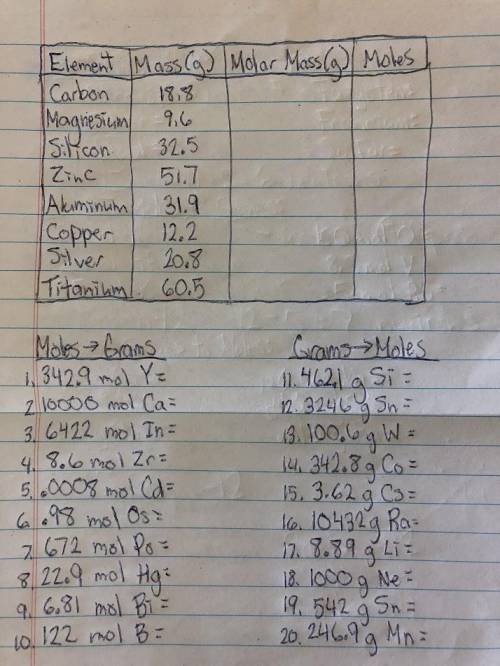 Element Mass(g) Molar Mass(g) Moles
Carbon 18.8
Magnesium 9.6
Silicon 32.5
Zinc 51.7
Aluminum 31.9
Copper 12.2
Silver 20.8
Titanium 60.5
Moles→Grams
1. 342.9 mol Y=
2. 10000 mol Ca=
3. 6422 mol In=
4. 8.6 mol Zr=
5. .0008 mol Cd=
6. .98 mol Os=
7. 672 mol Po=
8. 22.9 mol Hg=
9. 6.81 mol Bi=
10. 122 mol B=
Grams→Moles
11. 462.1 g Si=
12. 3246 g Sn=
13. 100.6 g W=
14. 342.8 g Co=
15. 3.62 g Cs=
16. 10432 g Ra=
17. 8.89 g Li=
18. 1000 g Ne=
19. 542 g Sn=
20. 246.9 g Mn=